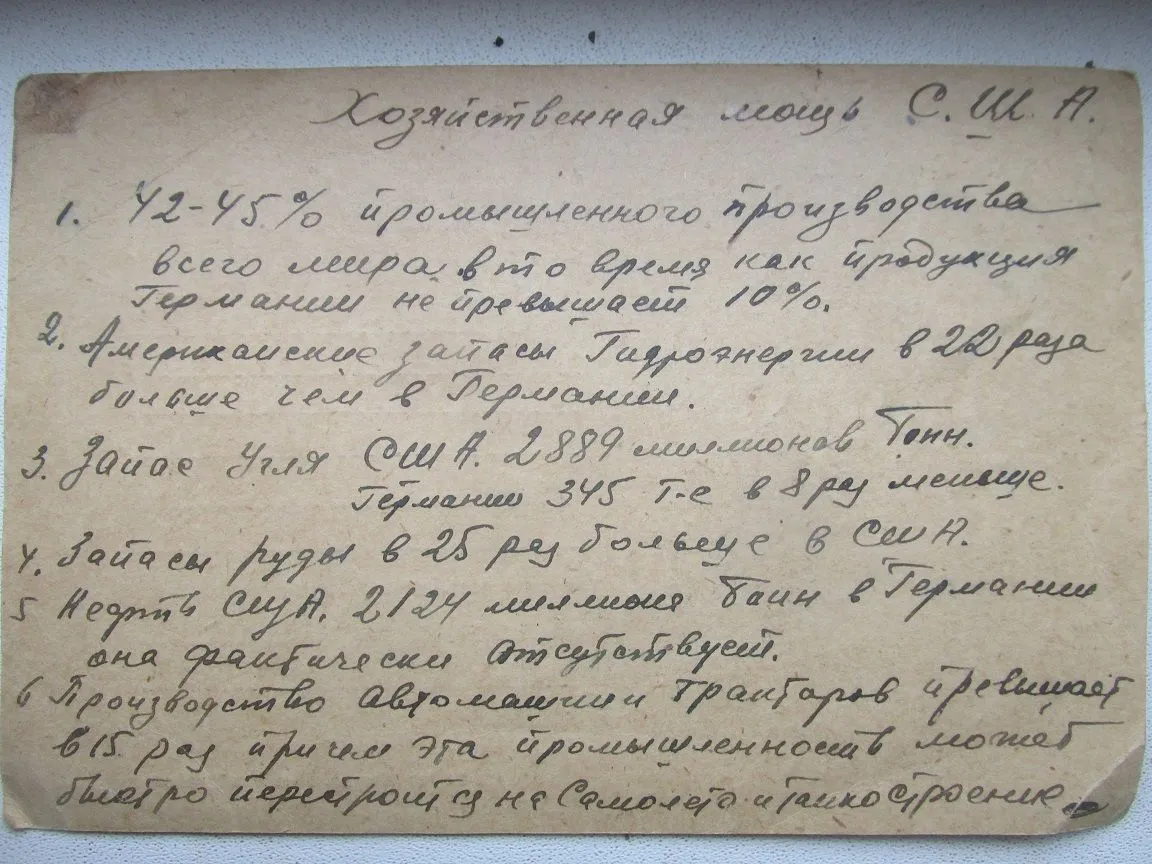 Хозяйственная мощь С.Ш.А.
1. 42-45% промышленного производства
всего мира в то время как продукция
Германии не превышает 10%.
2. Американские запасы Гидроэнергии в 22 раза
больше чем в Германии.
3. Запас Угля США. 2889 миллионов Тонн.
Германии 345 т-е в 8 раз меньше.
4. Запасы руды в 25 раз больше в США.
5 Нефть США. 2124 миллиона Тонн в Германии
она фактически отсутствует.
6 Производство Автомашин и Тракторов превышает
в 15 раз причем эта промышленность может
быстро перестроится на Самолето и танкостроение.